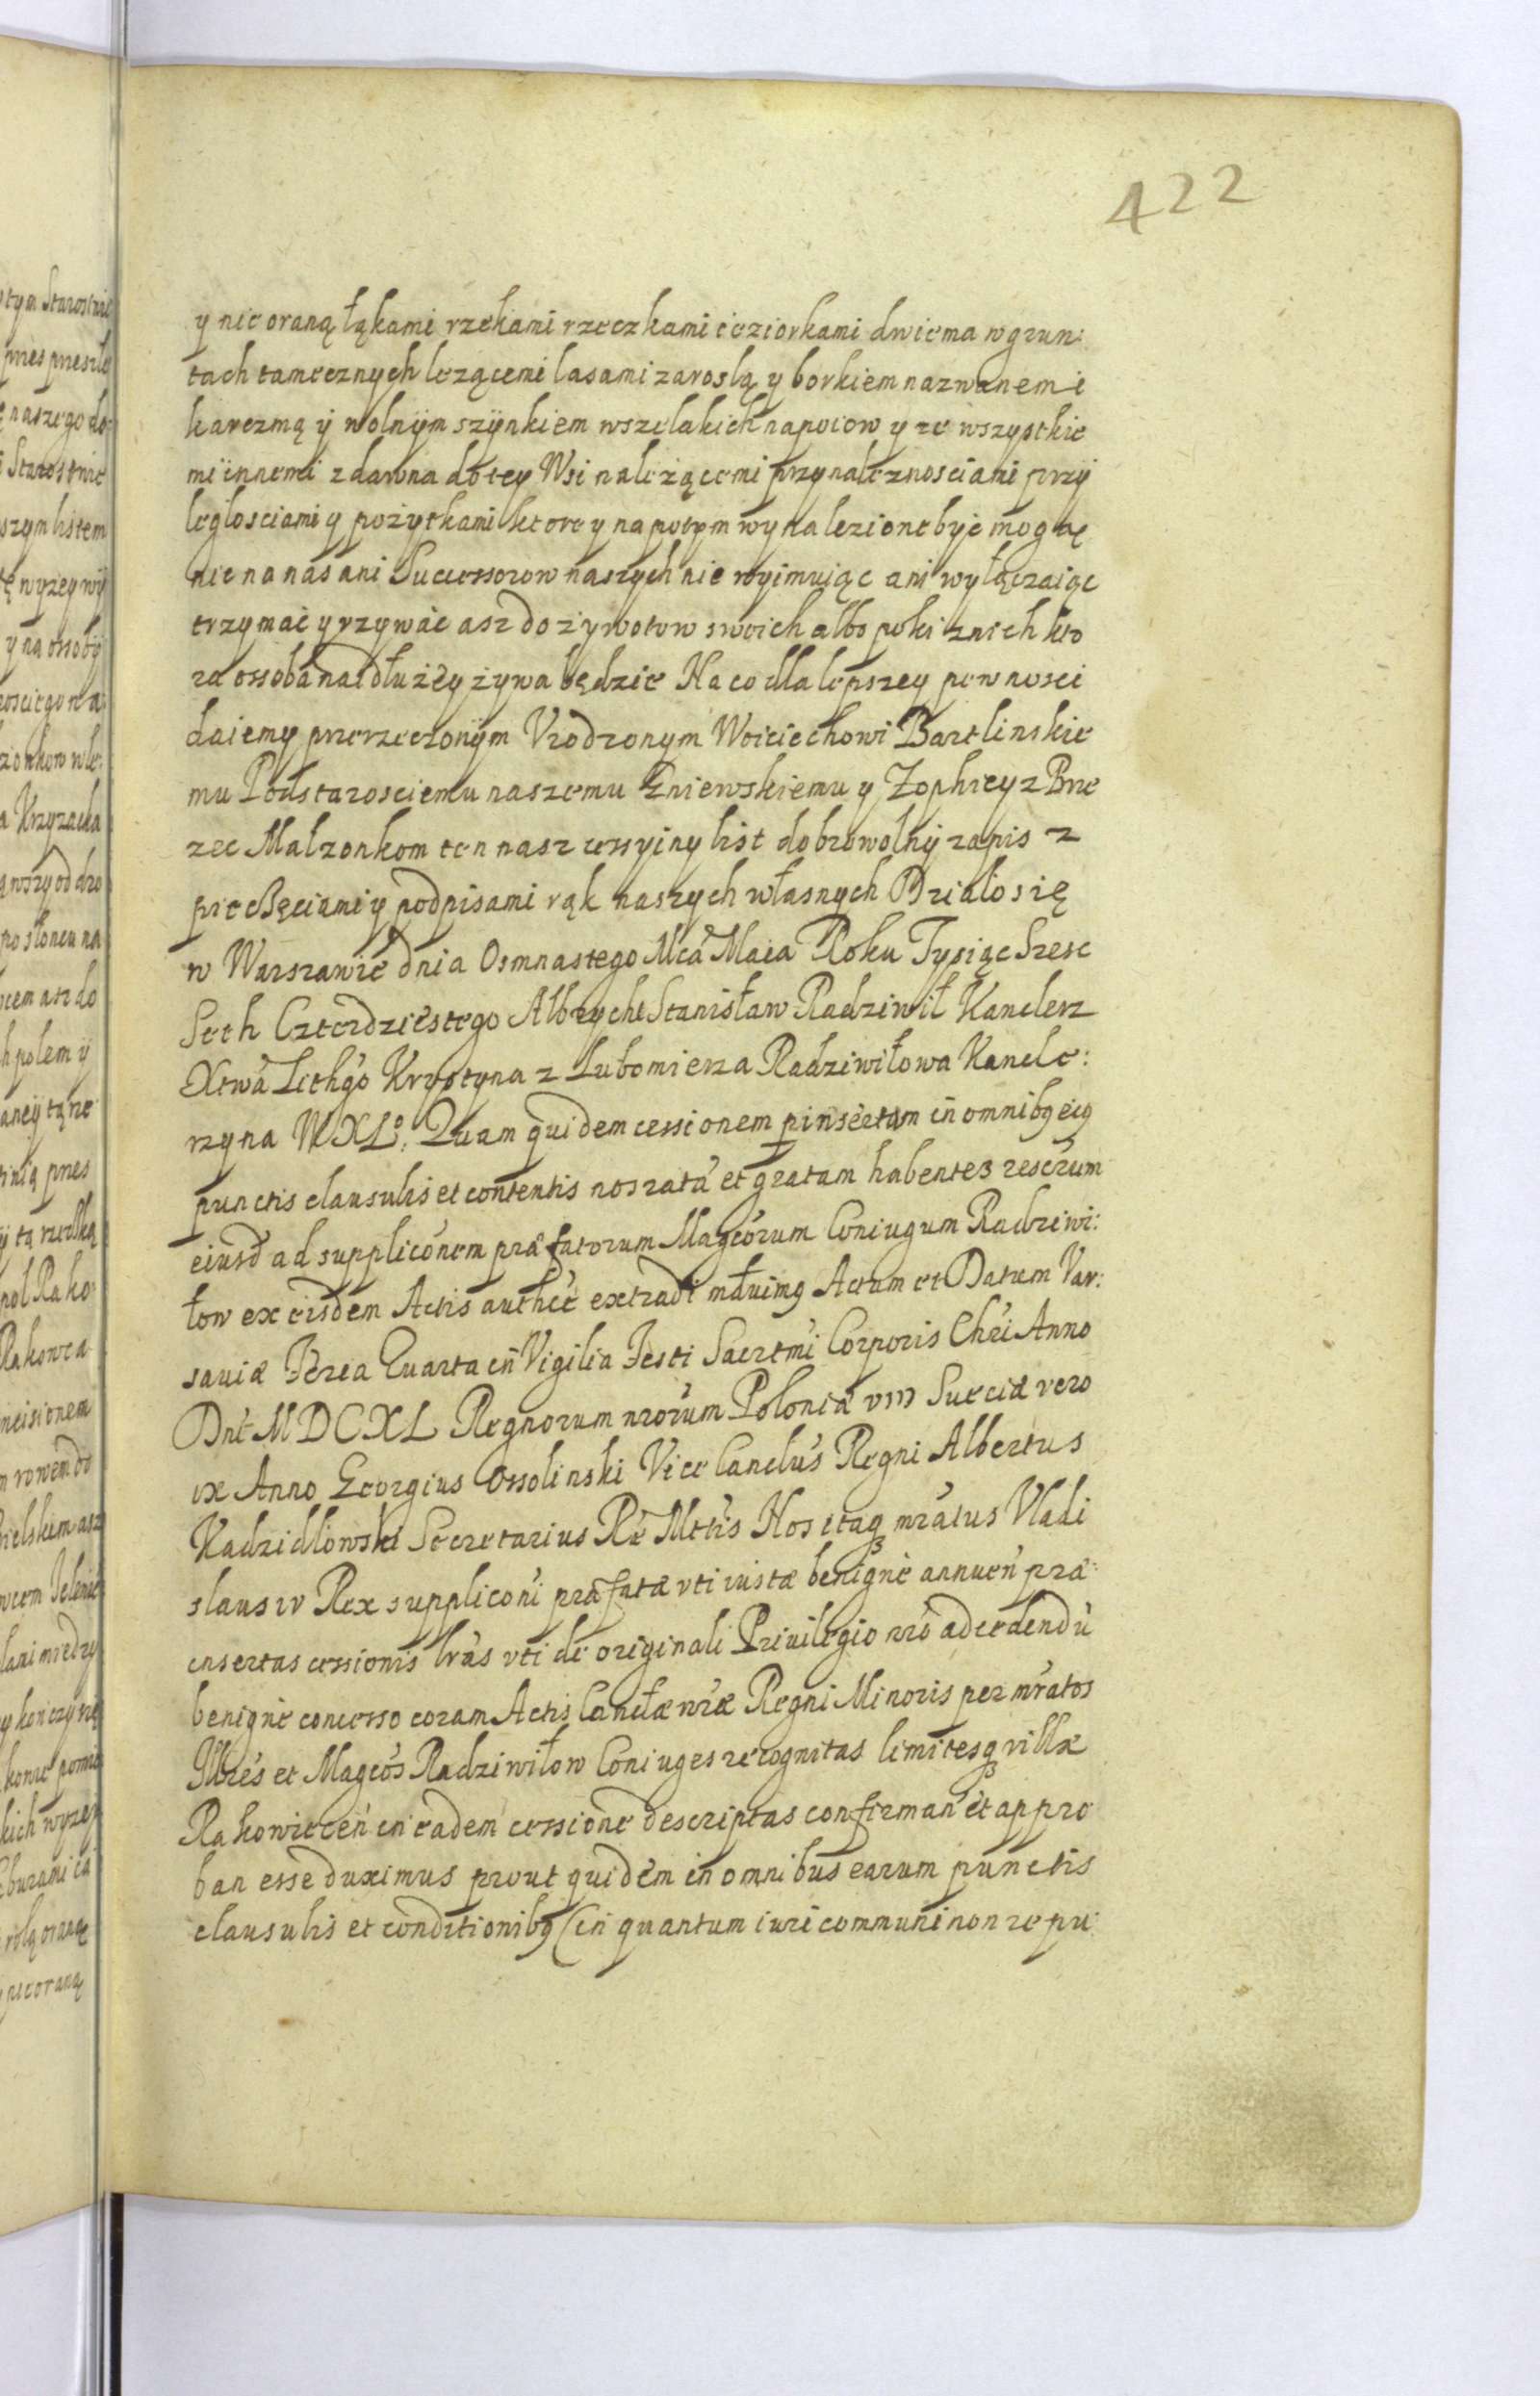 422
y nie oraną łąkami rzekami rzeczkami ieziorkami dwiema w grun:
tach tamecznych lezącemi lasami zaroslą y borkiem nazwanemi
karczmą ÿ wolnÿm szÿnkiem wszelakich napoiow y ze wszystkie
mi innemi zdawna do tey Wsi należącemi przynaleznosciami przÿ
leglosciami y pożytkami ktore y napotym wynalezione byc mogą
nic na nas ani Successorow naszych nie wyimuiąc ani wyłączaiąc
trzymać y vzywać asz do żywotow swoich albo poki znich kto
ra ossoba naidłużey żywa będzie Na co dla lepszey pewnosci
daiemy przerzeczonÿm Vrodzonym Woiciechowi Bartlinskie
mu Podstarosciemu naszemu Gniewskiemu y Zophiey z Brze
zec Malzonkom ten nasz cessyiny list dobrowolnÿ zapis z
pieczęciami y podpisami rąk naszych własnych Dzialo się
w Warszawie dnia Osmnastego Mca Maia Roku Tysiąc Szesc
Seth Czterdziestego Albrycht Stanisław Radziwił Kanclerz
Xtwa Lithgo Krystyna z Lubomierza Radziwiłowa Kancle:
rzyna WXLo. Quam quidem cessionem pinsertam in omnibq eiq
punctis clausulis et contentis nos rata et gratam habentes rescrum
eiusd ad suppliconem præfatorum Magcorum Coniugum Radziwi:
łow ex eisdem Actis authce extradi mdvimq Actum et Datum Var:
saviæ Feria Quarta in Vigilia Festi Sacrtmi Corporis Chri Anno
Dni MDCXL Regnorum nrorum Poloniæ VIII Sueciæ vero
IX Anno Georgius Ossolinski Vice Canclus Regni Albertus
Kadzidlowski Secretarius Ræ Mttis Nos itaq mratus Vladi
slaus IV Rex supplicōni præfatæ vti iustæ benignè annuen præ:
insertas cessionis lras vti de originali Priuilegio nro ad cedendū
benignè concesso coram Actis Canclæ nræ Regni Minoris per mratos
Illres et Magcos Radziwiłow Coniuges recognitas limitesq villæ
Rakowiecen in eadem cessione descriptas confirman et appro
ban esse duximus prout quidem in omnibus earum punctis
clausulis et conditionibq (in quantum iuri communi non repu: